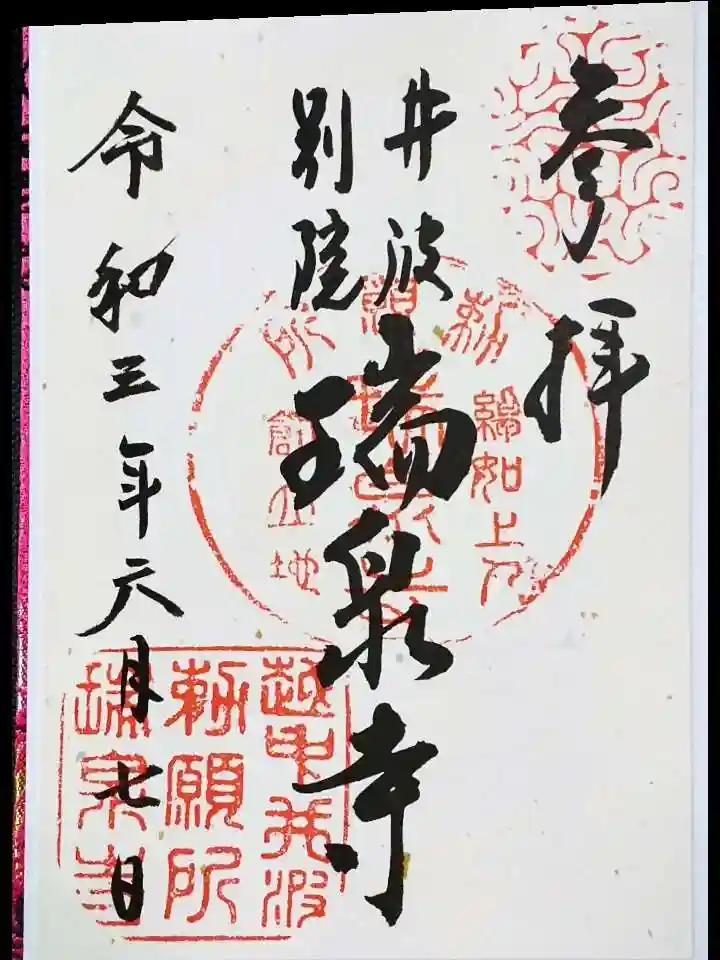 参拝
井波
別院
瑞泉寺
令和三年六月七日
勅願所
綽如上人
瑞泉寺
創立地
越中井波
勅願所
瑞泉寺